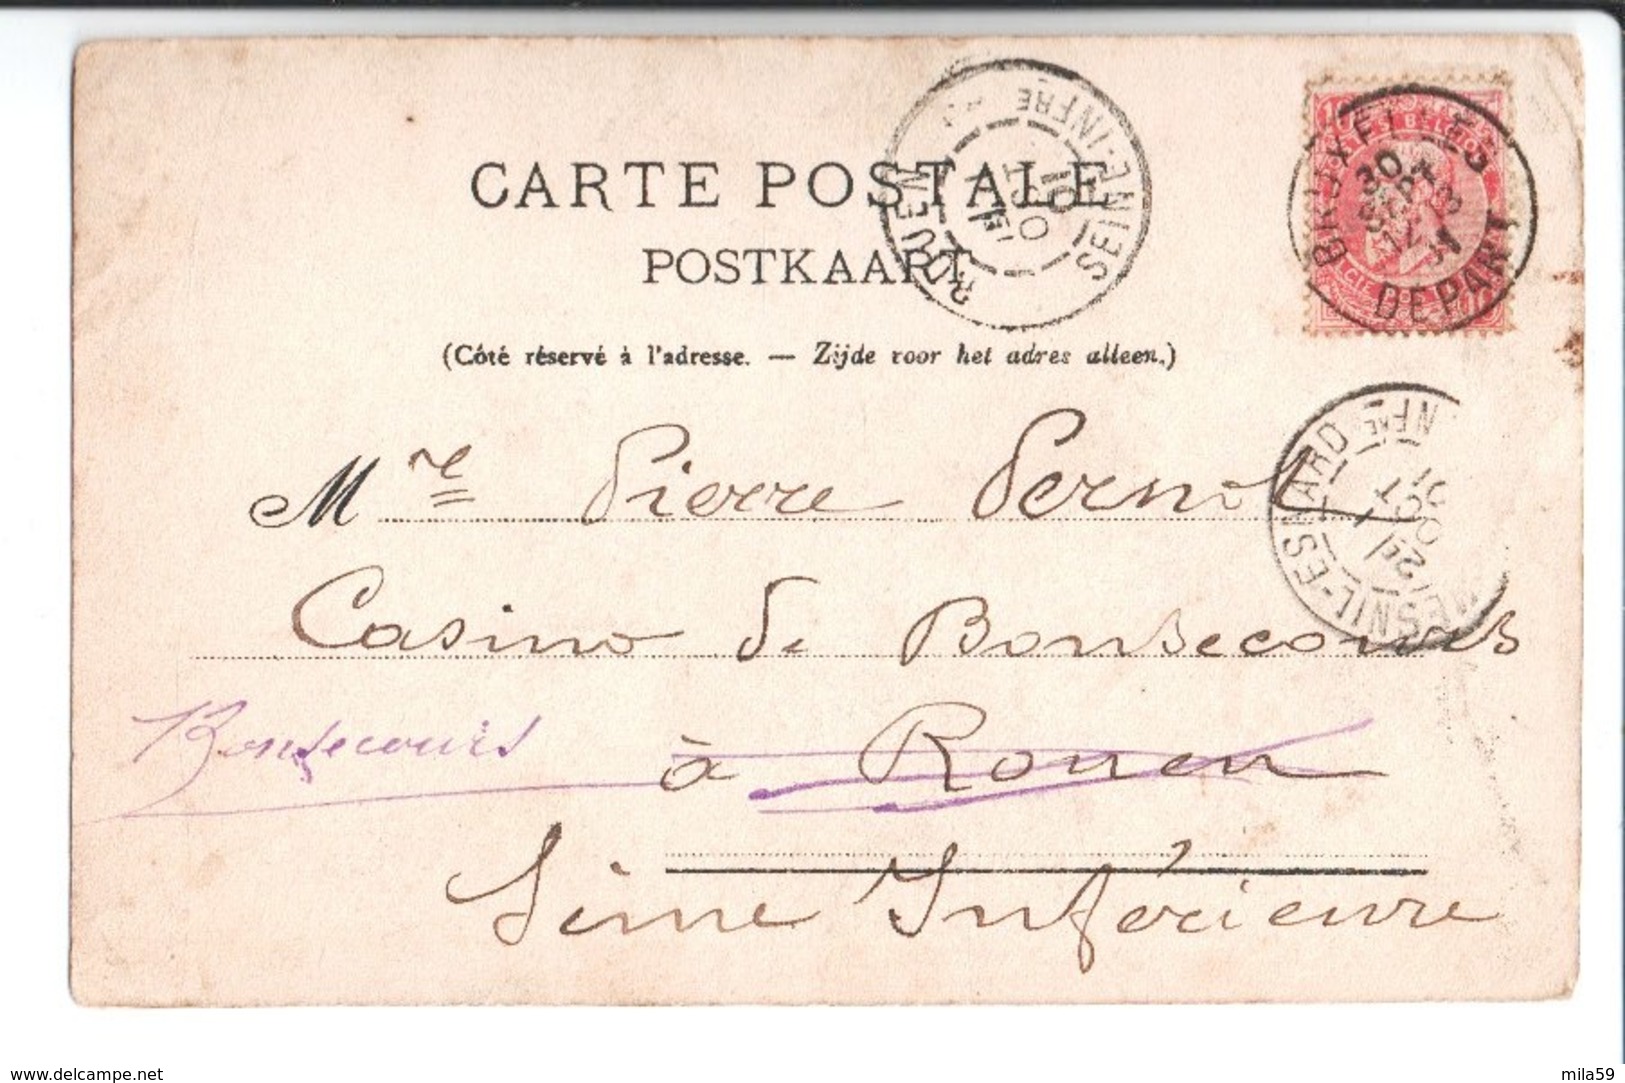 CARTE POSTALE
POSTKAART
(Côté réservé à l'adresse. — Zijde voor het adres alleen.)
ROUEN SEINE-INFRE
1E
OCT
01
BRUXELLES
30
SEPT
12
DEPART
MESNIL-ESNARD INFRE
2E
OCT
01
Mre Pierre Pernot
Casino de Bonsecours
Bonsecours
à Rouen
Seine Inférieure
www.delcampe.net
mila59